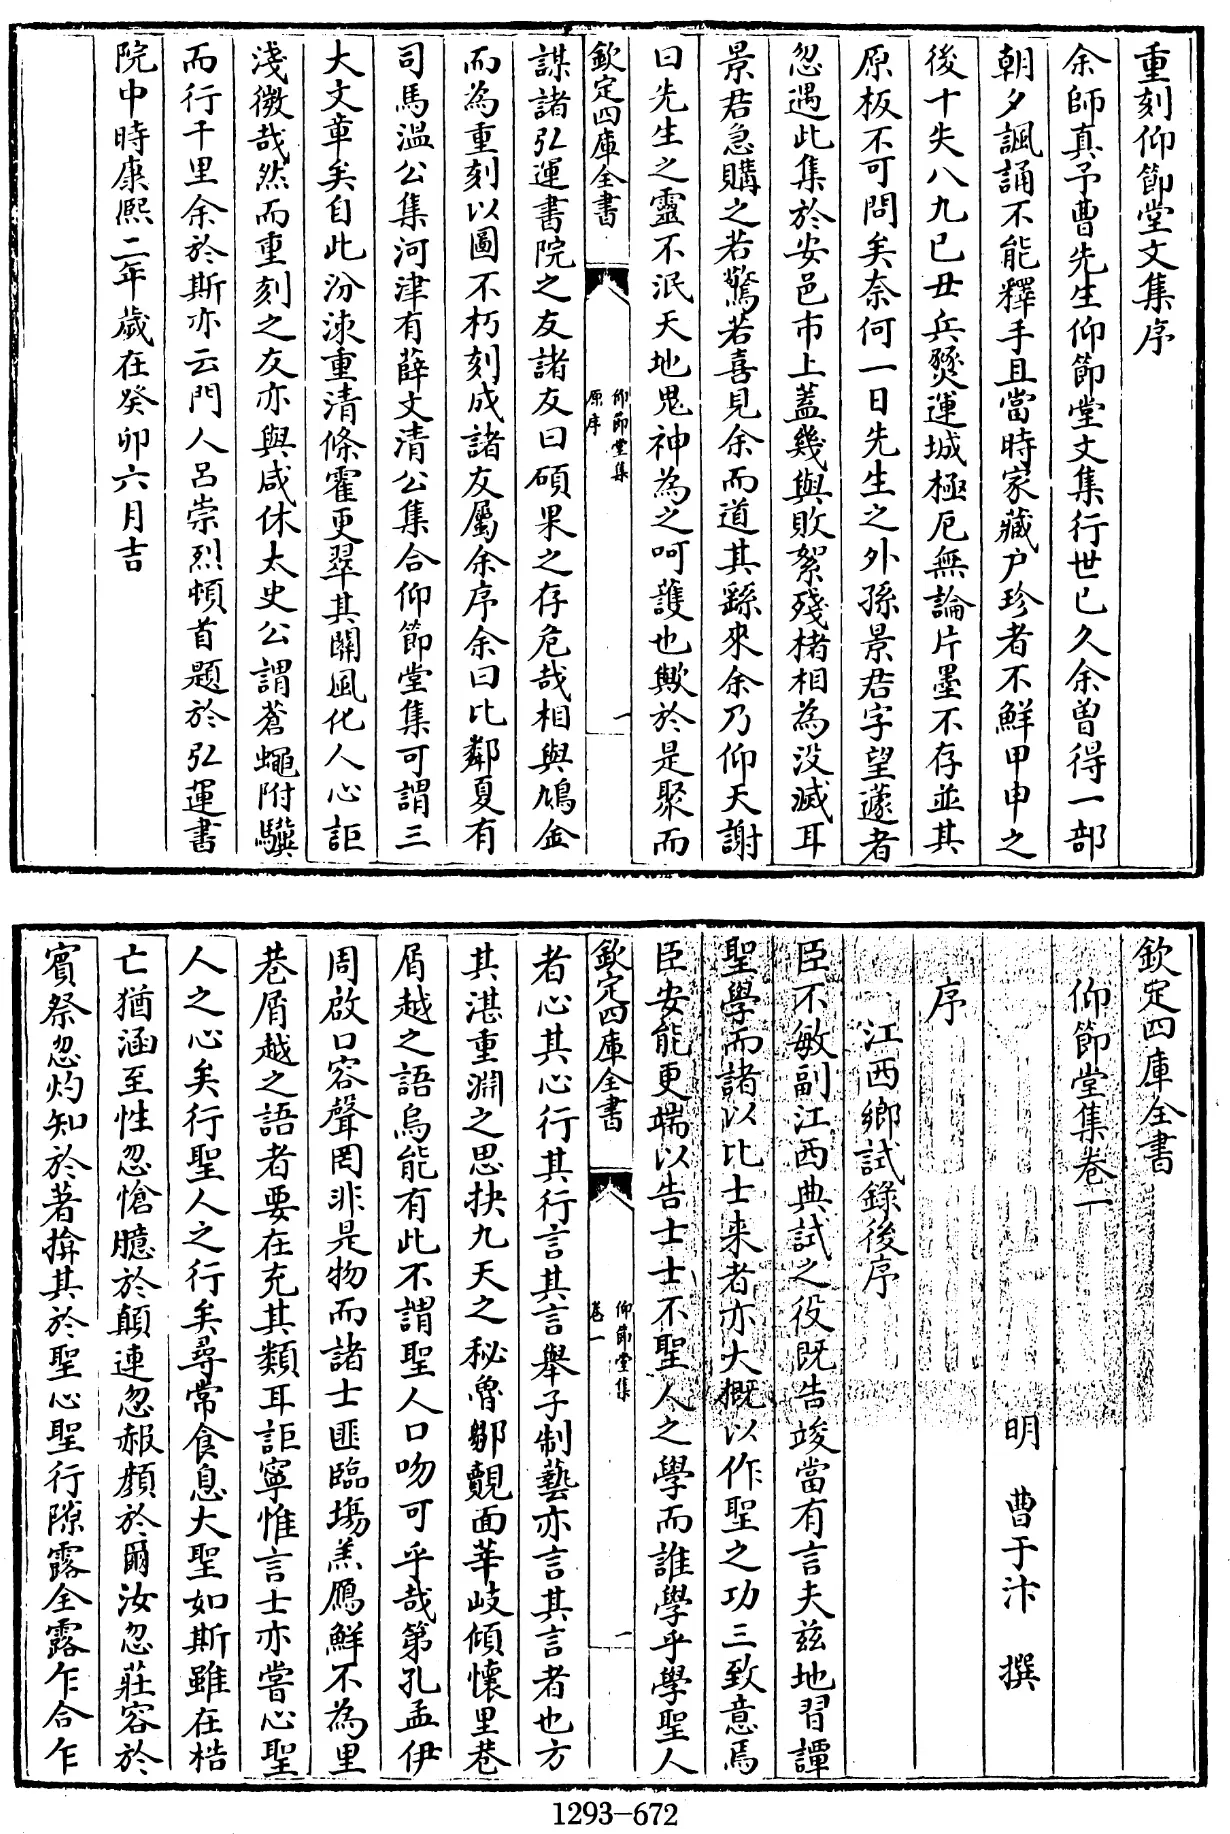 重刻仰節堂文集序
余師真予曹先生仰節堂文集行世已久余曽得一部
朝夕諷誦不能釋手且當時家藏户珍者不鮮甲申之
後十失八九已丑兵燹運城極厄無論片墨不存並其
原板不可問矣奈何一日先生之外孫景君字望蘧者
忽遇此集於安邑市上蓋幾與敗絮殘楮相為没滅耳
景君急購之若驚若喜見余而道其繇來余乃仰天謝
曰先生之靈不泯天地鬼神為之呵護也歟於是聚而
欽定四庫全書
仰節堂集
原序
一
謀諸弘運書院之友諸友曰碩果之存危哉相與鳩金
而為重刻以圖不朽刻成諸友屬余序余曰比鄰夏有
司馬溫公集河津有薛文清公集合仰節堂集可謂三
大文章矣自此汾涑重清條霍更翠其關風化人心詎
淺微哉然而重刻之友亦與咸休太史公謂蒼蠅附驥
而行千里余於斯亦云門人呂崇烈頓首題於弘運書
院中時康熙二年歲在癸卯六月吉
欽定四庫全書
仰節堂集卷一
明 曹于汴 撰
序
江西鄉試錄後序
臣不敏副江西典試之役既告竣當有言夫兹地習譚
聖學而諸以比士来者亦大概以作聖之功三致意焉
臣安能更端以告士士不聖人之學而誰學乎學聖人
欽定四庫全書
仰節堂集
卷一
一
者心其心行其行言其言舉子制藝亦言其言者也方
其湛重淵之思抉九天之秘魯鄒覿面莘岐傾懷里巷
屑越之語烏能有此不謂聖人口吻可乎哉第孔孟伊
周啟口容聲罔非是物而諸士匪臨塲羔鴈鮮不為里
巷屑越之語者要在充其類耳詎寧惟言士亦嘗心聖
人之心矣行聖人之行矣尋常食息大聖如斯雖在梏
亡猶涵至性忽愴臆於顛連忽赧顏於爾汝忽莊容於
賓祭忽灼知於著揜其於聖心聖行隙露全露乍合乍
1293-672